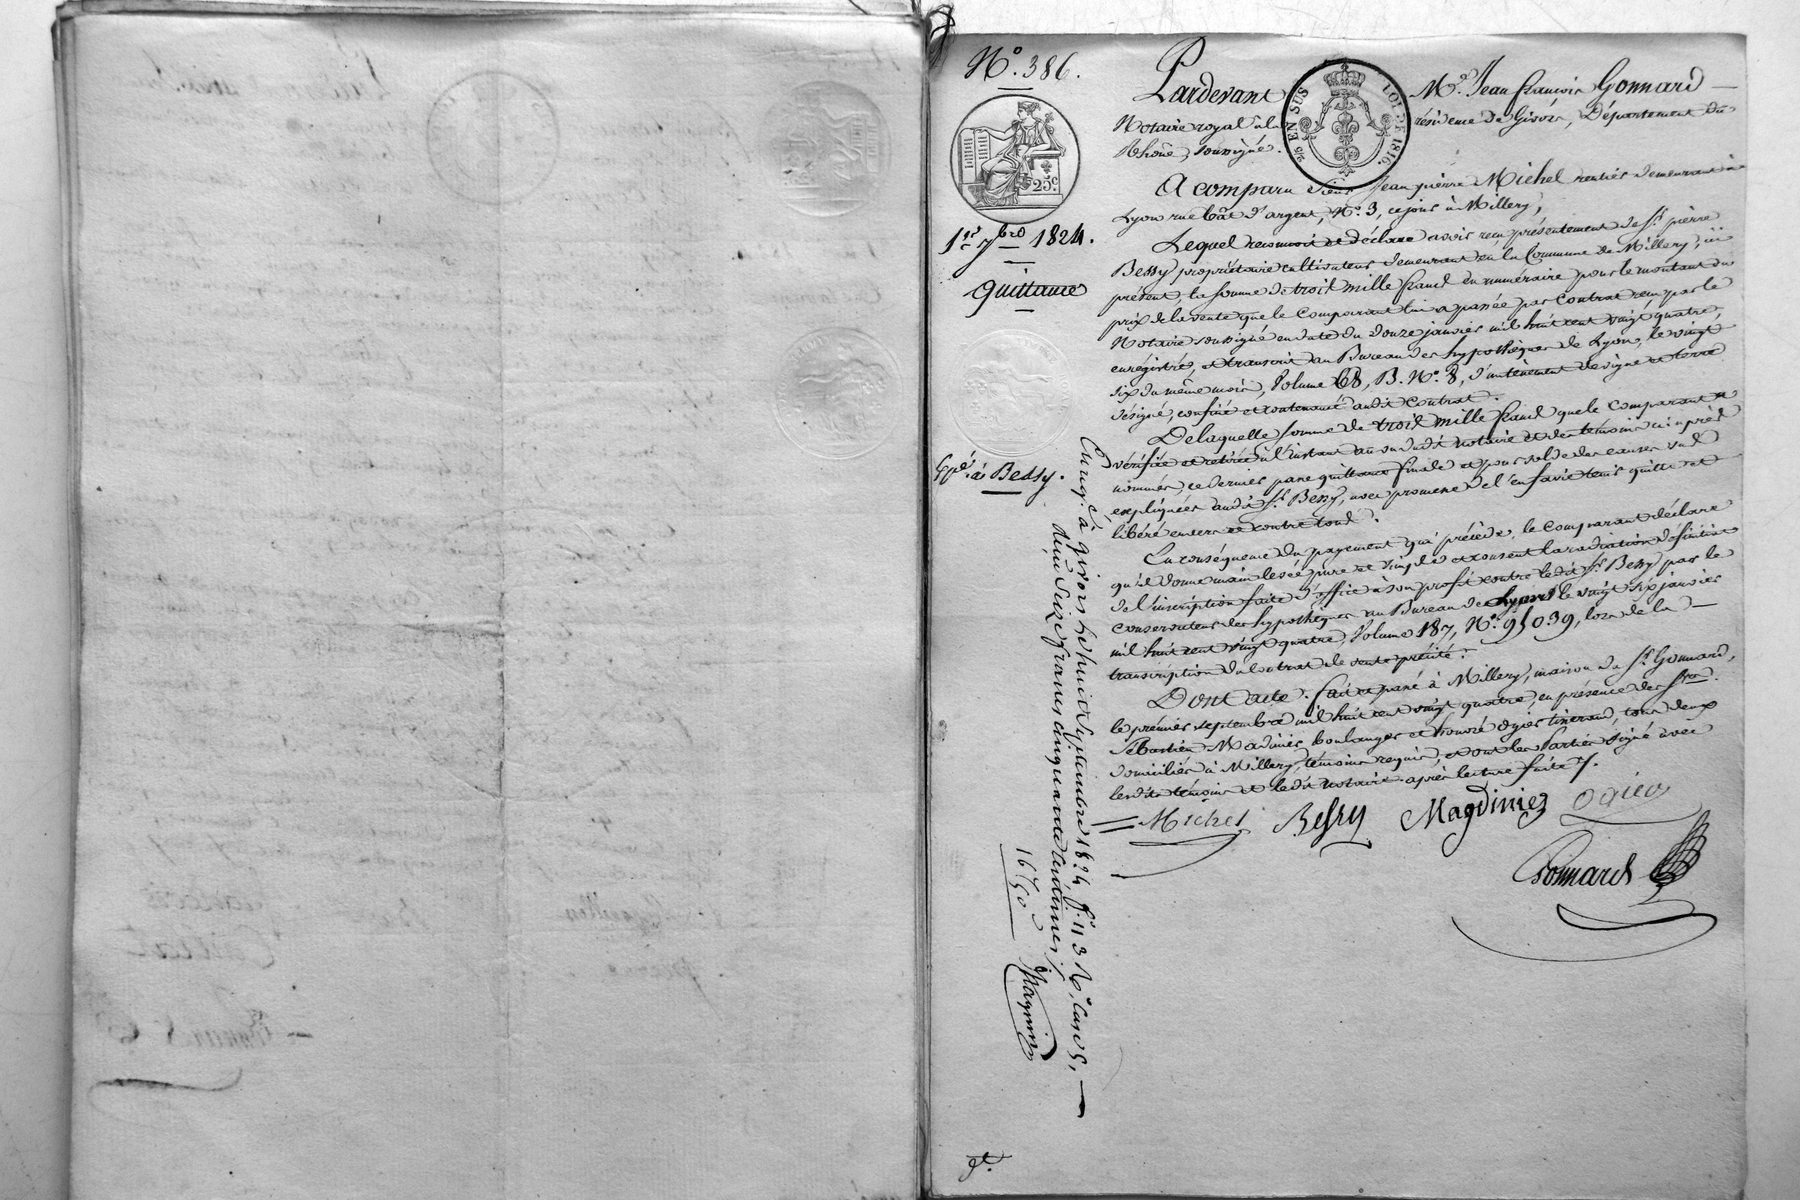 N.° 386.
25c
1er 7bre 1824.
quittance
Expé. à Bessy.
Pardevant Me. Jean françois Gonnard —
25 EN SUS LOI DE 1816.
Notaire royal à la résidence de Givors, Département du
Rhône, soussigné.
A comparu sieur Jean pierre Michel rentier demeurant à
Lyon rue Bât d'argent, N.° 3, ce jour à Millery,
Lequel reconnoit et déclare avoir reçu présentement de Sr. pierre
Bessy propriétaire cultivateur demeurant en la Commune de Millery, ici
présent, la somme de trois mille francs en numéraire pour le montant du
prix de la vente que le Comparant lui a passée par contrat reçu par le
Notaire soussigné en date du douze janvier mil huit cent vingt quatre,
enrégistré, et transcrit au Bureau des hypothèques de Lyon, le vingt
six du même mois, Volume 68, B. N.° 8, d'un tenement de vigne et terre
désigné, confiné et contenancé audit Contrat.
De laquelle somme de trois mille francs que le comparant a
vérifiée et retirée à l'instant au vu dudit notaire et des temoins ci après
nommés, ce dernier passe quittance finale et pour solde des causes sus
expliquées audit Sr. Bessy, avec promesse de l'en faire tenir quitte et
libéré envers et contre tous.
En conséquence du payement qui précède, le comparant déclare
qu'il donne main levée pure et simple et consent la radiation définitive
de l'inscription faite d'office à son profit contre ledit Sr. Bessy par le
conservateur des hypothèques au Bureau de Lyon le vingt six janvier
mil huit cent vingt quatre, Volume 187, N.° 95039, lors de la —
transcription du contrat de vente précité.
Dont acte. fait et passé à Millery, maison du Sr. Gonnard,
le premier septembre mil huit cent vingt quatre, en présence des srs.
Sébastien Madinier boulanger et honoré ogier tisserand, tous deux
domiciliés à Millery, temoins requis, et ont les parties signé avec
lesdits témoins et ledit notaire après lecture faite.
Michel Bessy Magdinier ogier
Gonnard
Enregé. à givors le huit septembre 1824, f.° 113 R.° Case 5, —
reçu seize francs cinquante centimes;
16 f 50 c